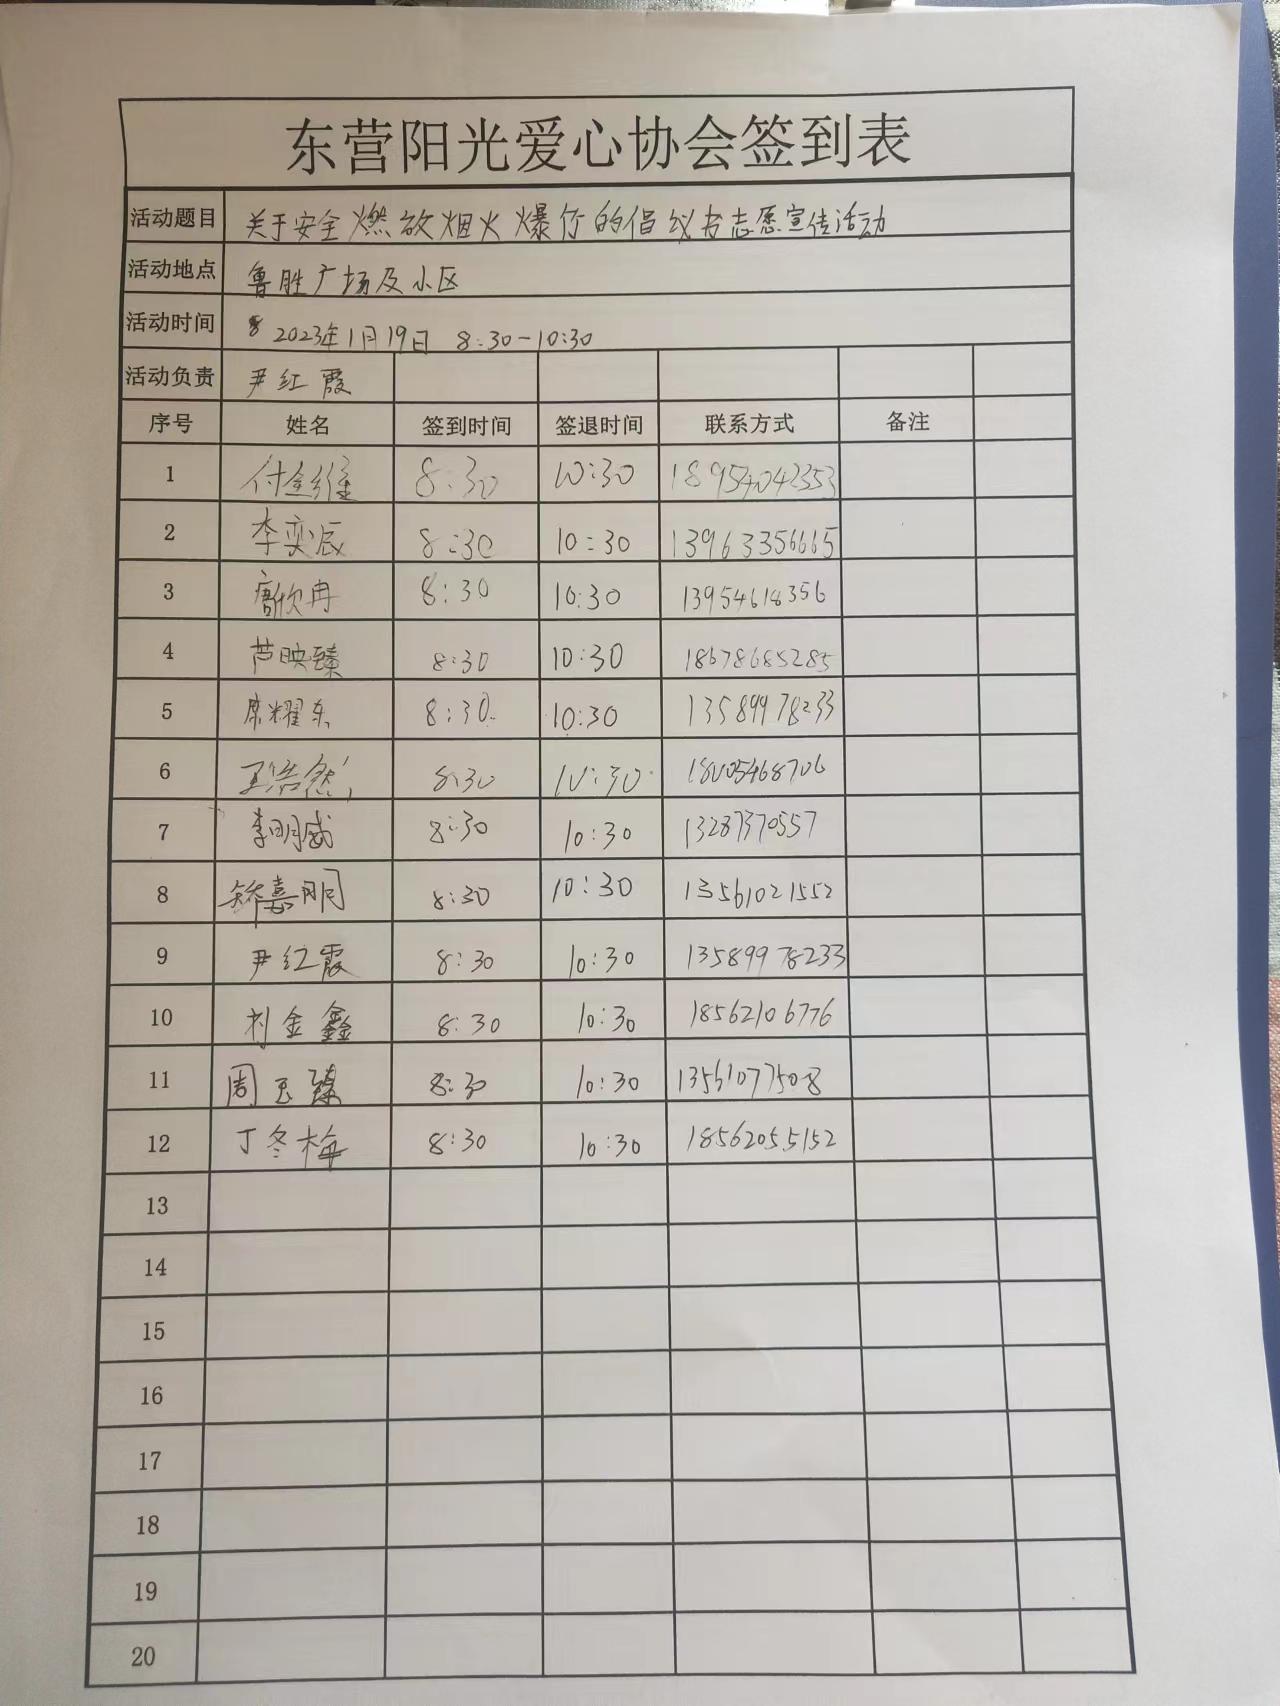 东营阳光爱心协会签到表
活动题目 关于安全燃放烟火爆竹的倡议书志愿宣传活动
活动地点 鲁胜广场及小区
活动时间 2023年1月19日 8:30-10:30
活动负责 尹红霞
序号 姓名 签到时间 签退时间 联系方式 备注
1 付金维 8:30 10:30 18954042353
2 李奕辰 8:30 10:30 13963356665
3 唐欣冉 8:30 10:30 13954618356
4 芦映臻 8:30 10:30 18678685285
5 席耀东 8:30 10:30 13589978233
6 王浩然 8:30 10:30 18005468706
7 李明威 8:30 10:30 13287370557
8 矫嘉明 8:30 10:30 13561021552
9 尹红霞 8:30 10:30 13589978233
10 刘金鑫 8:30 10:30 18562106776
11 周玉臻 8:30 10:30 13561077508
12 丁冬梅 8:30 10:30 18562055152
13
14
15
16
17
18
19
20